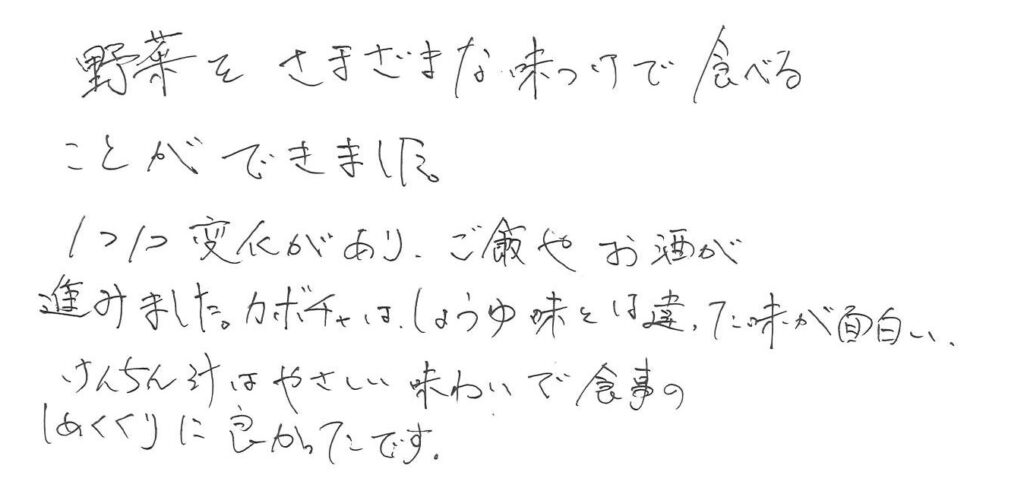 野菜をさまざまな味つけで食べる
ことができました。
1つ1つ変化があり、ご飯やお酒が
進みました。カボチャは、しょうゆ味とは違った味が面白い、
けんちん汁はやさしい味わいで食事の
しめくくりに良かったです。